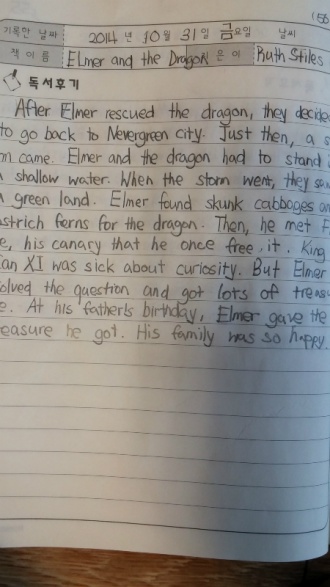 (55
기록한 날짜 2014 년 10 월 31 일 금요일 날씨
책 이름 Elmer and the Dragon 은 이 Ruth Stiles
독서후기
After Elmer rescued the dragon, they decide
to go back to Nevergreen city. Just then, a s
m came. Elmer and the dragon had to stand
shallow water. When the storm went, they sa
green land. Elmer found skunk cabbages an
strich ferns for the dragon. Then, he met F
e, his canary that he once free it. King
an XI was sick about curiosity. But Elmer
olved the question and got lots of treasu
e. At his father's birthday, Elmer gave the
easure he got. His family was so happy.